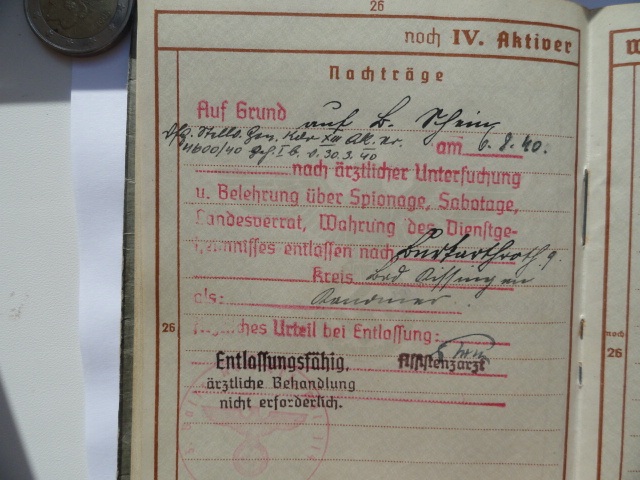 26
noch IV. Aktiver
Nachträge
Auf Grund auf B. Schein
Vfg. Stellv. Gen. Kdo XIII AK. nr.
4600/40 geh. I b. v. 30.3.40 am 6.8.40.
nach ärztlicher Untersuchung
u. Belehrung über Spionage, Sabotage,
Landesverrat, Wahrung des Dienstge-
heimnisses entlassen nach Burkardroth
Kreis Bad Kissingen
als:
26
Urteil bei Entlassung:
Entlassungsfähig, Assistenzarzt
ärztliche Behandlung
nicht erforderlich.
26